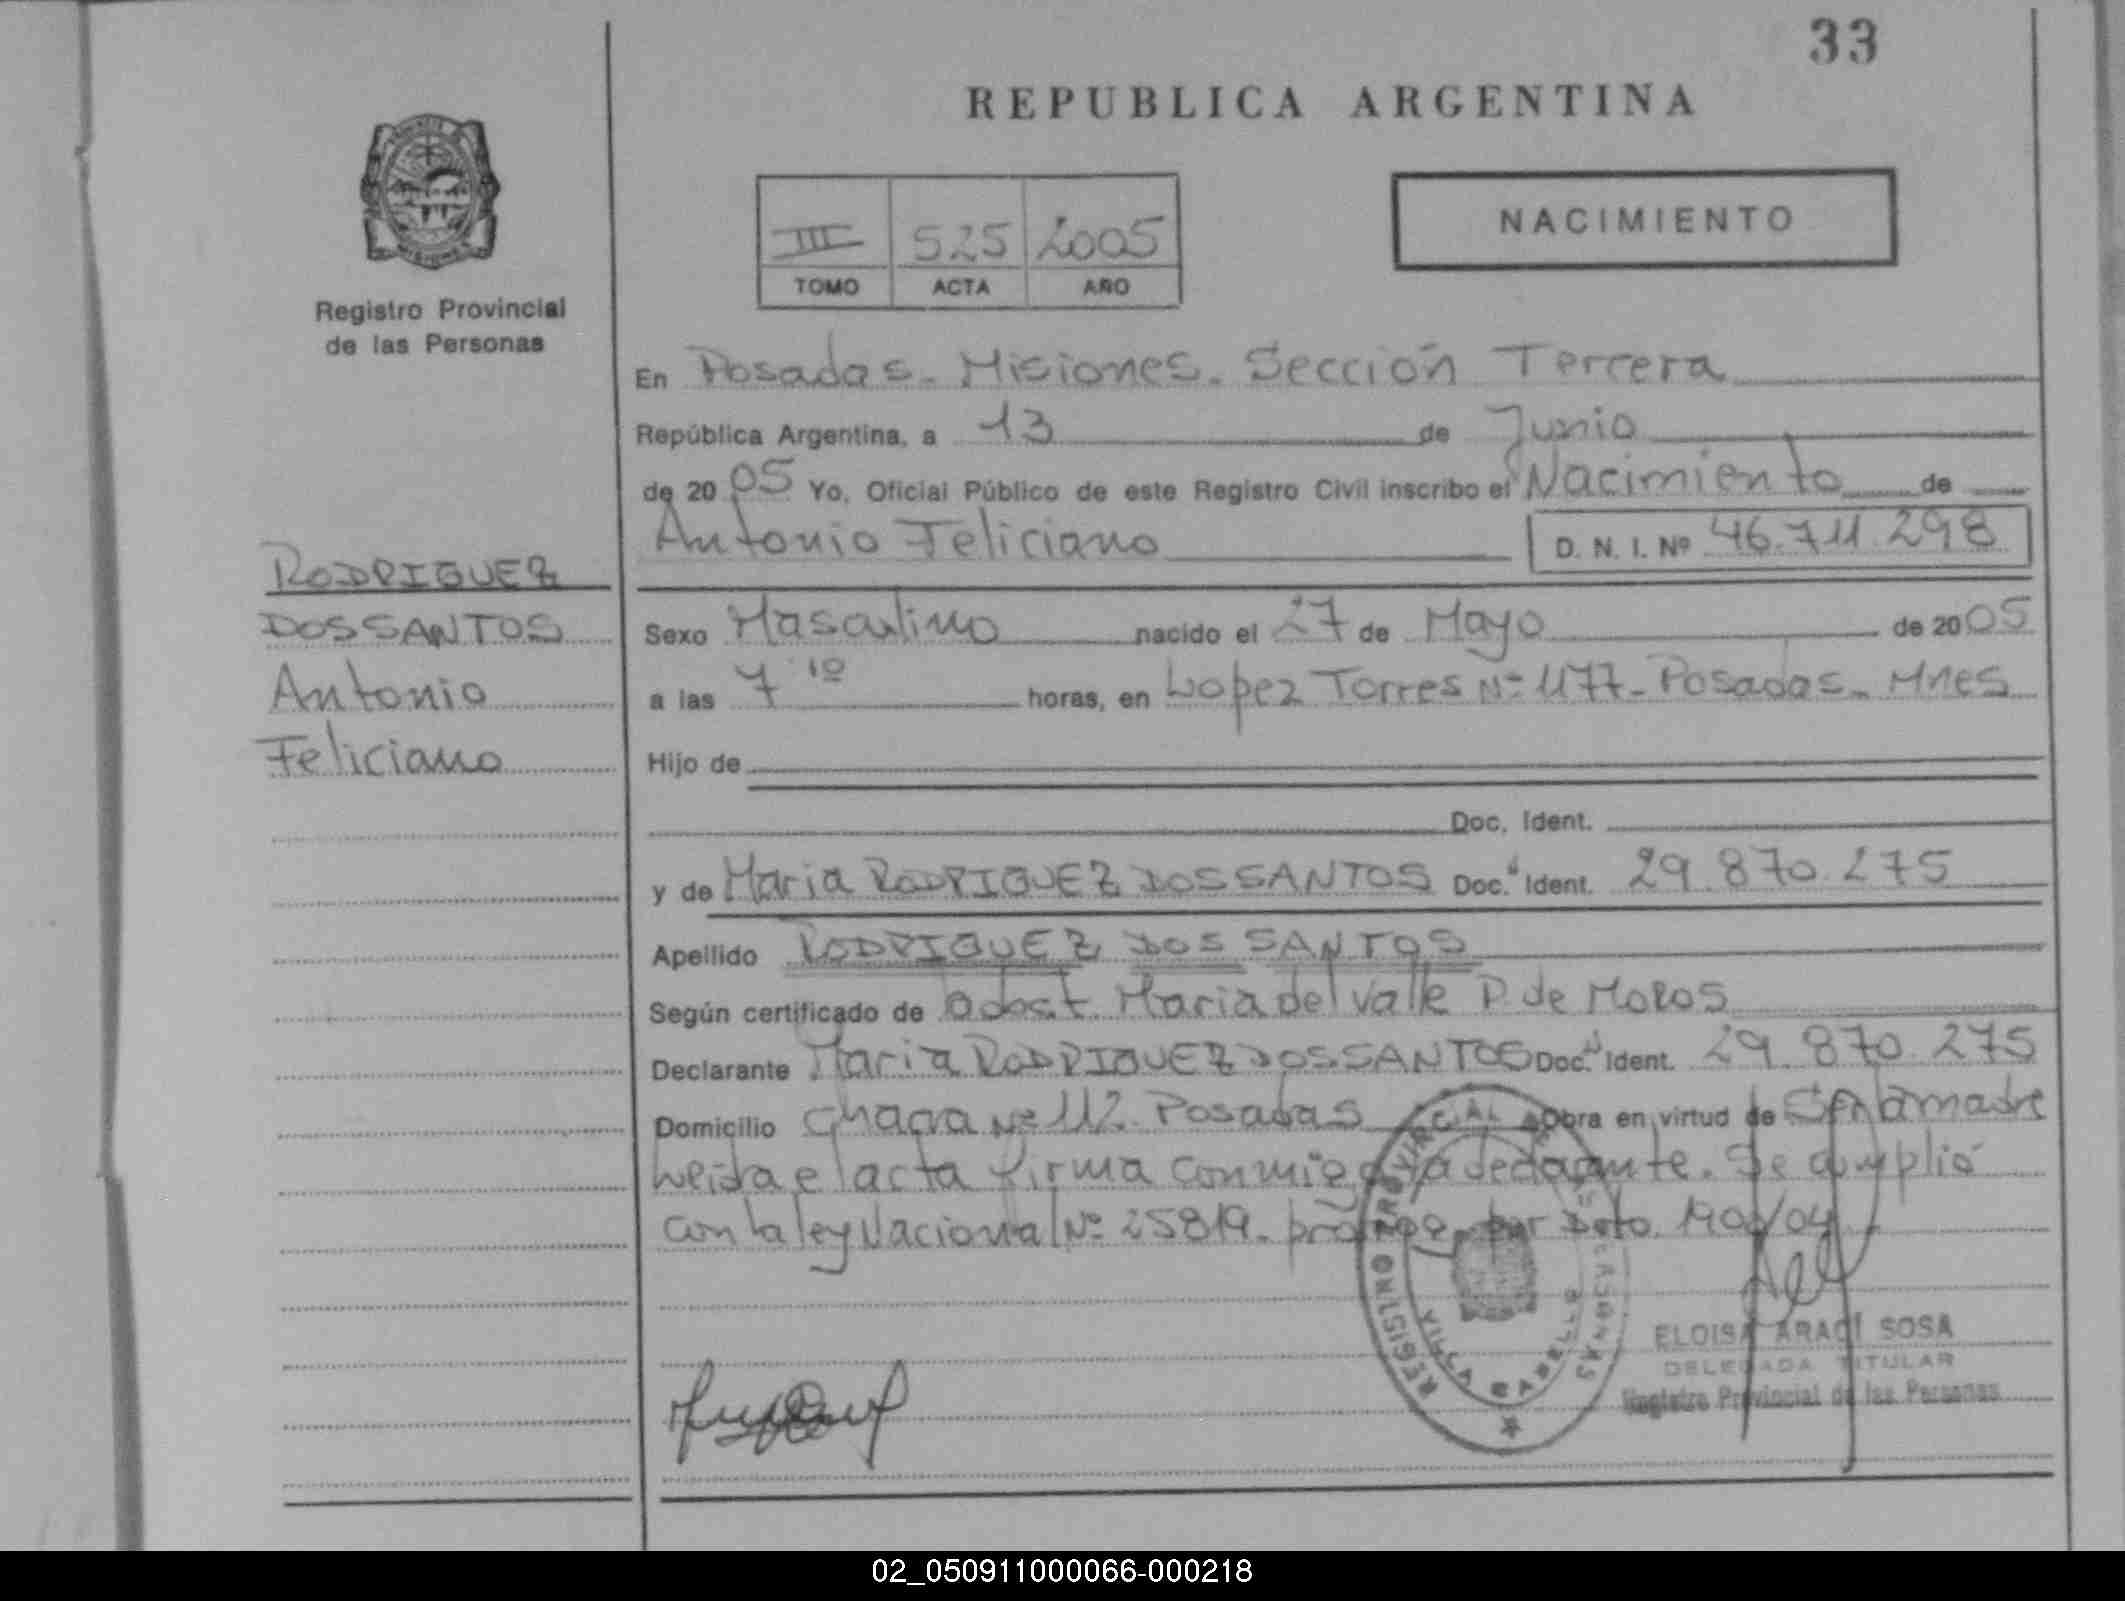 33
REPUBLICA ARGENTINA
Registro Provincial
de las Personas
III 525 2005
TOMO ACTA AÑO
NACIMIENTO
En Posadas - Misiones - Sección Tercera
República Argentina, a 13 de Junio
de 2005 Yo, Oficial Público de este Registro Civil inscribo el Nacimiento de
Antonio Feliciano D. N. I. Nº 46.711.298
RODRIGUEZ
DOS SANTOS
Antonio
Feliciano
Sexo Masculino nacido el 27 de Mayo de 2005
a las 7 10 horas, en Lopez Torres Nº 1177 - Posadas - Mnes
Hijo de
Doc. Ident.
y de Maria RODRIGUEZ DOS SANTOS Doc. Ident. 29.870.275
Apellido RODRIGUEZ DOS SANTOS
Según certificado de Obst. Maria del Valle P. de MOROS
Declarante Maria RODRIGUEZ DOS SANTOS Doc. Ident. 29.870.275
Domicilio Chacra Nº 112 - Posadas Obra en virtud de madre
Leida el acta firma conmigo la declarante. Se cumplió
con la ley Nacional Nº 25819 - por Dcto.
REGISTRO PROVINCIAL DE LAS PERSONAS
VILLA CABELLO
ELOISA ARACI SOSA
DELEGADA TITULAR
Registro Provincial de las Personas
02_050911000066-000218